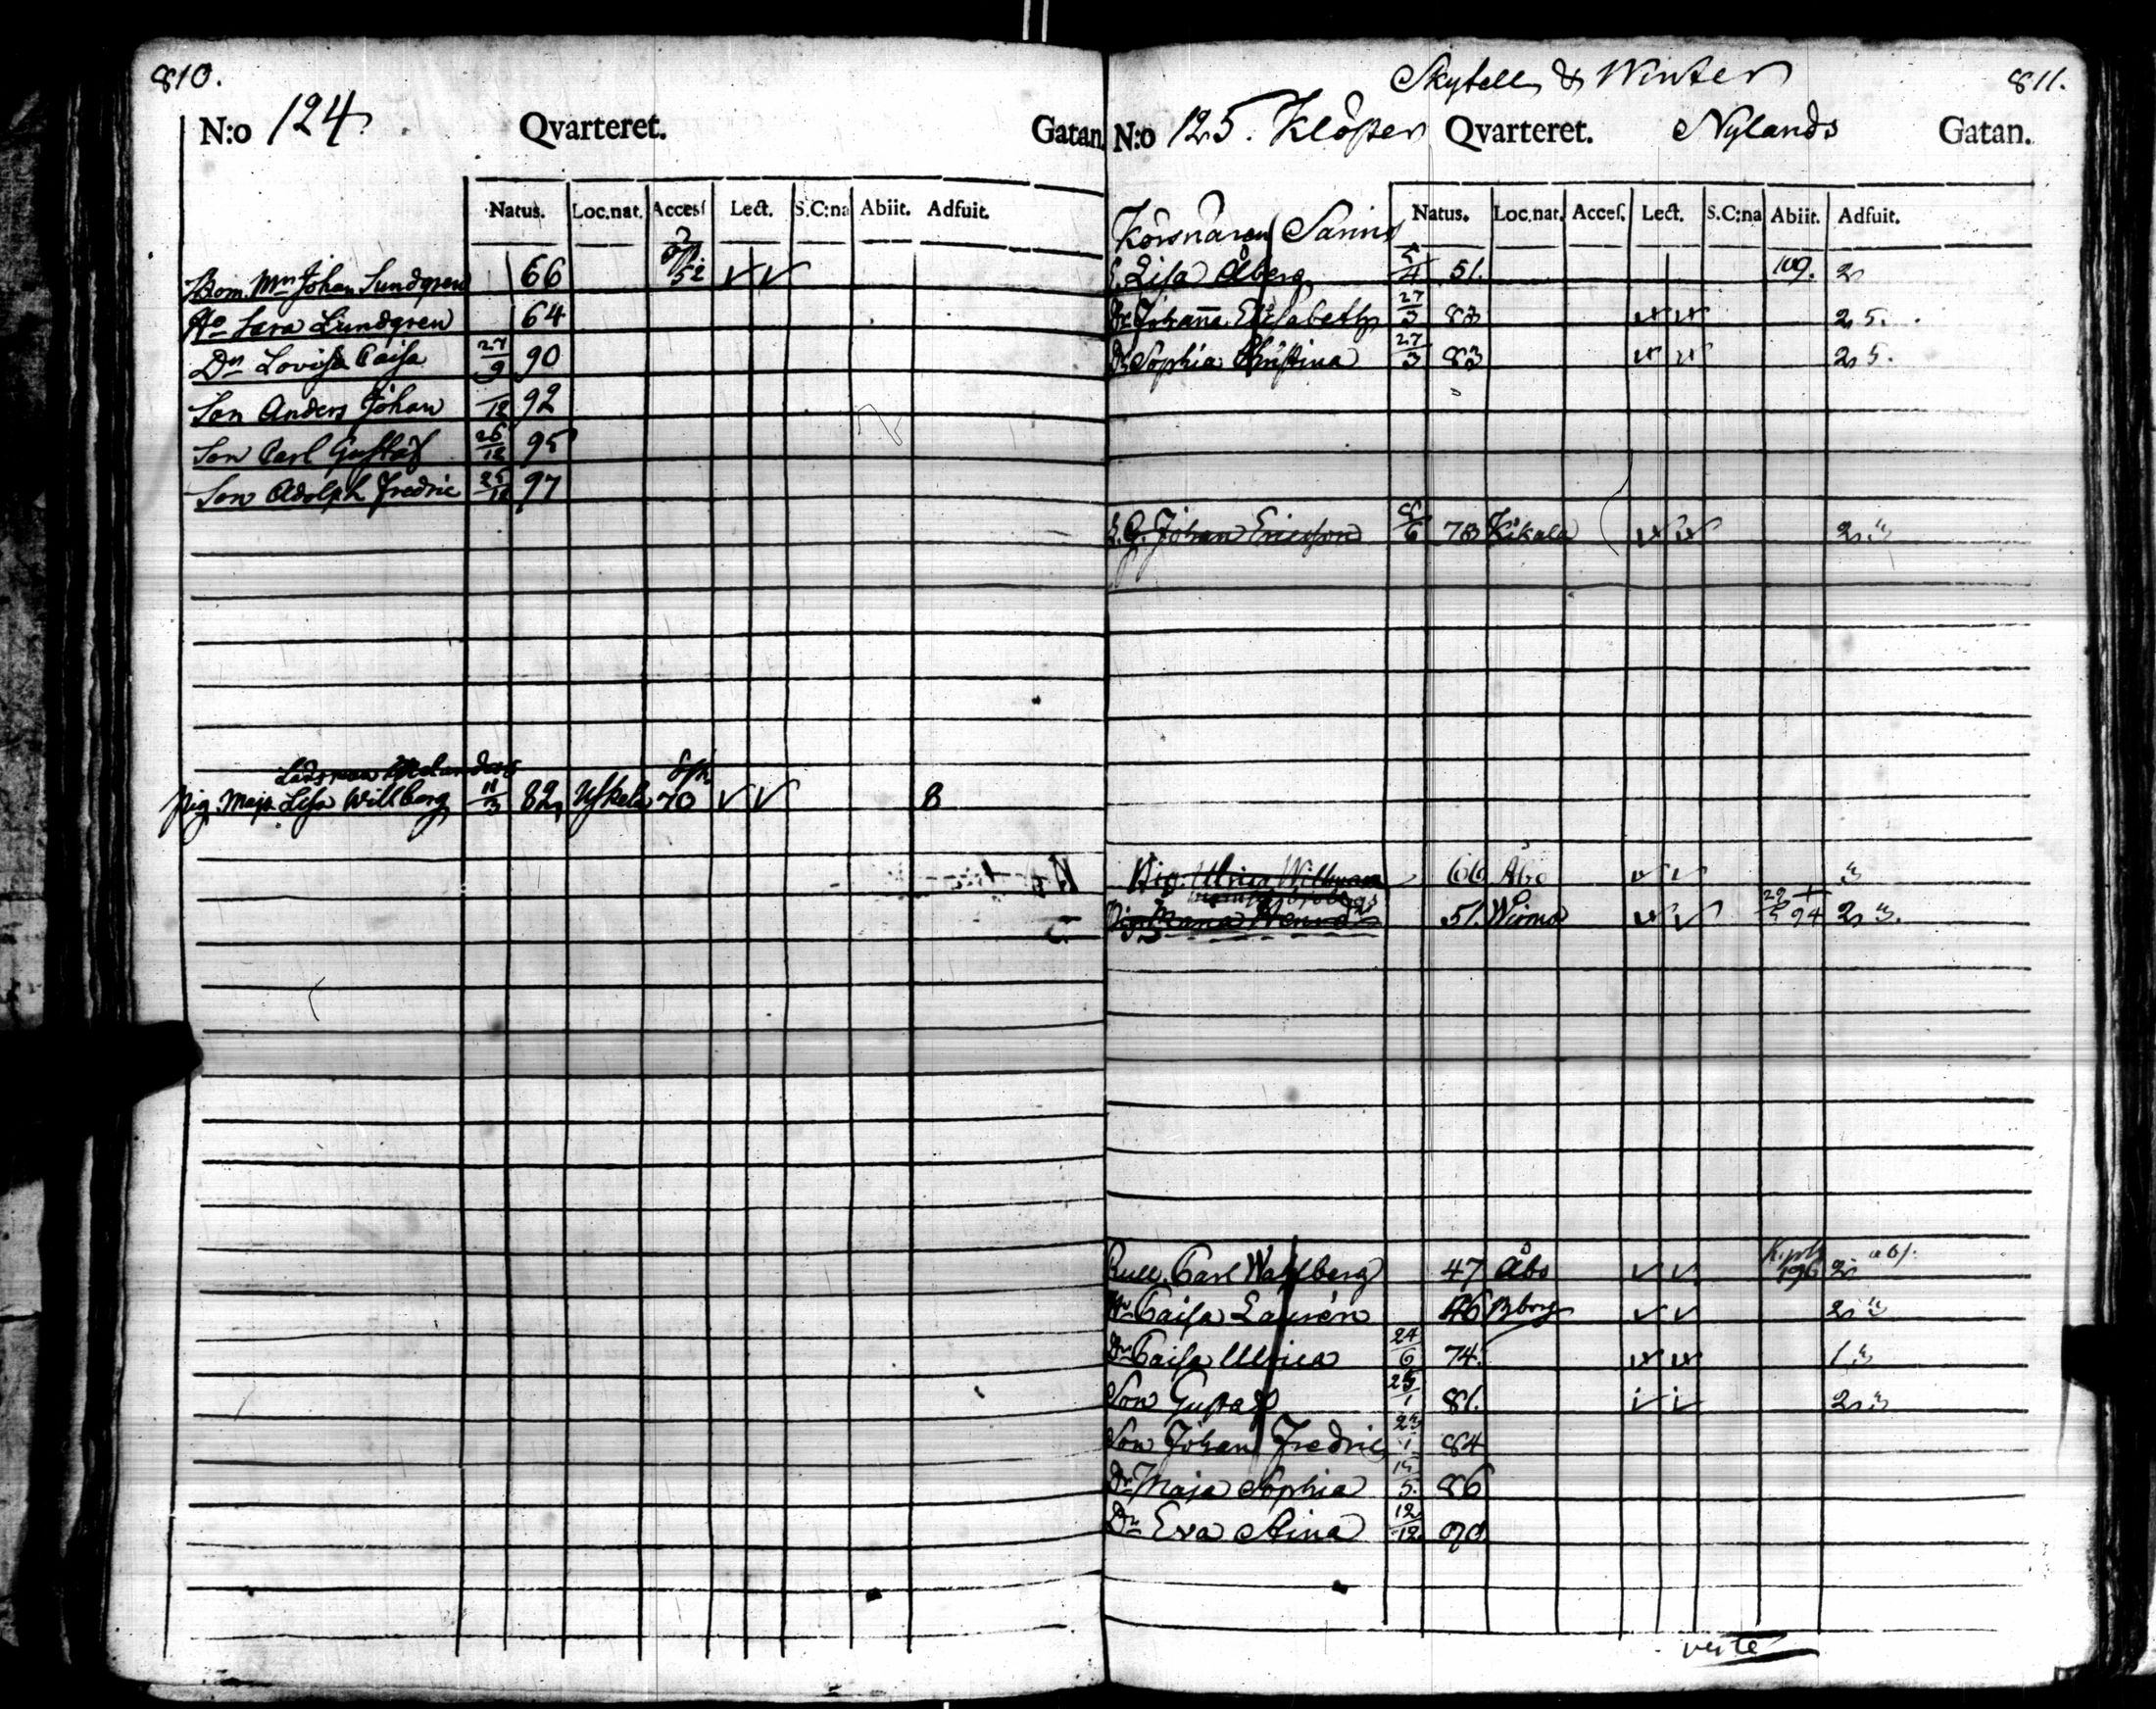 810.
N:o 124 Qvarteret. Gatan.
Natus. Loc.nat. Accesſ Lect. S.C:na Abiit. Adfuit.
Bom. Mn Johan Lundgren 66 52
Ho Sara Lundgren 64
Dr Lovisa Caisa 27/9 90
Son Anders Johan /12 92
Son Carl Gustaf 26/12 95
Son Adolph Fredric 25/12 97
Pig. Maja Lisa Willberg 11/3 82 Uskela 70 8
Skytell & Winter 811.
N:o 125. Klöster Qvarteret. Nylands Gatan.
Natus. Loc.nat. Acceſ. Lect. S.C:na Abiit. Adfuit.
Körsnären Sarins
E. Lisa Åberg 5/4 51. 109. 2
Dr Johanna Elisabeth 27/3 83 2 5.
Dr Sophia Christina 27/3 83 2 5.
L. G. Johan Ericsson 6 78 Kikala 2 3
Pig. Ulrica Willman 66 Åbo 3
Pig Maria 51. Wirmo 94 2 3.
Rull. Carl Wahlberg 47 Åbo 196 2 abs.
Hu Caisa Laurén 46 Bborg 2 3
Dr Caisa Ulrica 24/6 74. 1 3
Son Gustaf 25/1 81. 2 3
Son Johan Fredric 23/1 84
Dr Maja Sophia 15/5. 86
Dr Eva Stina 12/12. 90.
verte